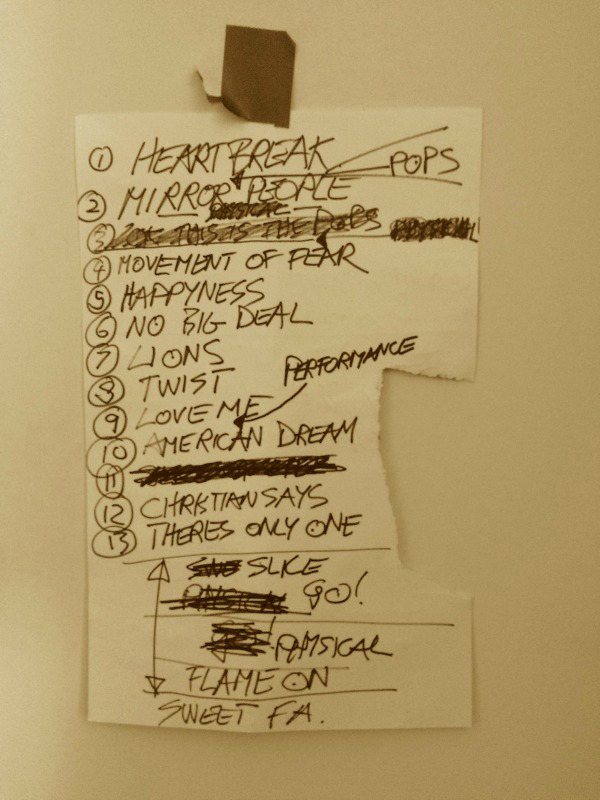 ① HEARTBREAK
POPS
② MIRROR PEOPLE
PHYSICAL
③ THIS IS THE POPS
④ MOVEMENT OF FEAR
⑤ HAPPYNESS
⑥ NO BIG DEAL
⑦ LIONS
PERFORMANCE
⑧ TWIST
⑨ LOVE ME
⑩ AMERICAN DREAM
⑪
⑫ CHRISTIAN SAYS
⑬ THERES ONLY ONE
SLICE
PHYSICAL GO!
PHYSICAL
FLAME ON
SWEET F.A.